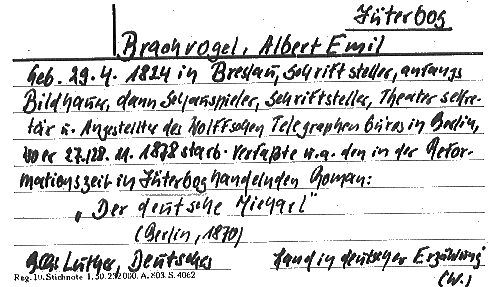 Jüterbog
Brachvogel, Albert Emil
Geb. 29.4. 1824 in Breslau, Schriftsteller, anfangs
Bildhauer, dann Schauspieler, Schriftsteller, Theatersekre-
tär u. Angestellter des Wolffschen Telegraphenbüros in Berlin,
wo er 27./28. 11. 1878 starb. Verfaßte u.a. den in der Refor-
mationszeit in Jüterbog handelnden Roman:
„Der deutsche Michael"
(Berlin, 1870)
Luther, Deutsches Land in deutscher Erzählung
Reg. 10. Stichnote 1. 50. 232000. A. 803. S. 4062
(W.)